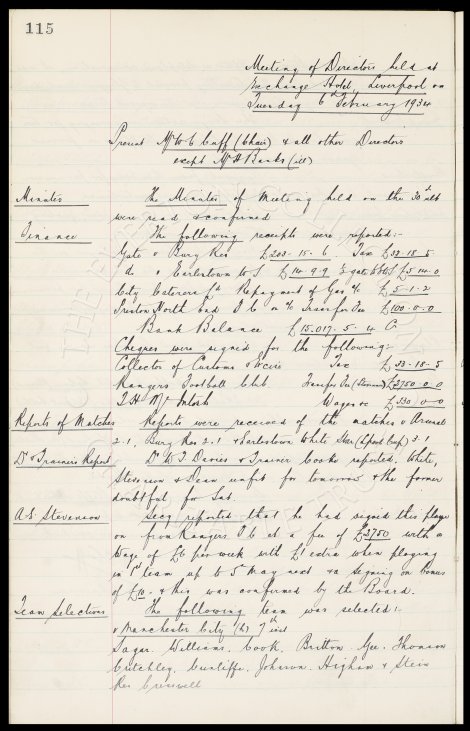 115
Meeting of Directors held at
Exchange Hotel, Liverpool on
Tuesday 6th February 1934
Present Mr W C Cuff (Chair) & all other Directors
except Mr A Banks (ill)
Minutes The Minutes of Meeting held on the 30th ult
were read & confirmed
Finance The following receipts were reported:-
Gate v Bury Res £203-15-6 Tax £32-18-5
do v Earlestown W S £14-9-9 £5-14-0
City Caterers Ld Repayment of Gas a/c £5-1-2
Preston North End F C on a/c Transfer Fee £100-0-0
Bank Balance £15,017-5-4 Cr
Cheques were signed for the following:-
Collector of Customs & Excise Tax £33-18-5
Rangers Football Club Transfer Fee (Stevenson) £2750-0-0
T H McIntosh Wages &c £330-0-0
Reports of Matches Reports were received of the matches v Arsenal
2-1, Bury Res 2-1 & Earlestown White Star (Lpool Cup) 3-1
Dr & Trainers Report Dr W J Davies & Trainer Cooke reported White,
Stevenson & Dean unfit for tomorrow & the former
doubtful for Sat.
A.E. Stevenson Secy reported that he had signed this player
on from Rangers F C at a fee of £2750 with a
wage of £6 per week with £1 extra when playing
in 1st team up to 5th May next & a signing on bonus
of £10- & this was confirmed by the Board.
Team Selections The following team was selected:-
v Manchester City (h) 7th inst
Sagar. Williams. Cook. Britton. Gee. Thomson
Critchley. Cunliffe. Johnson. Higham & Stein
Res Cresswell